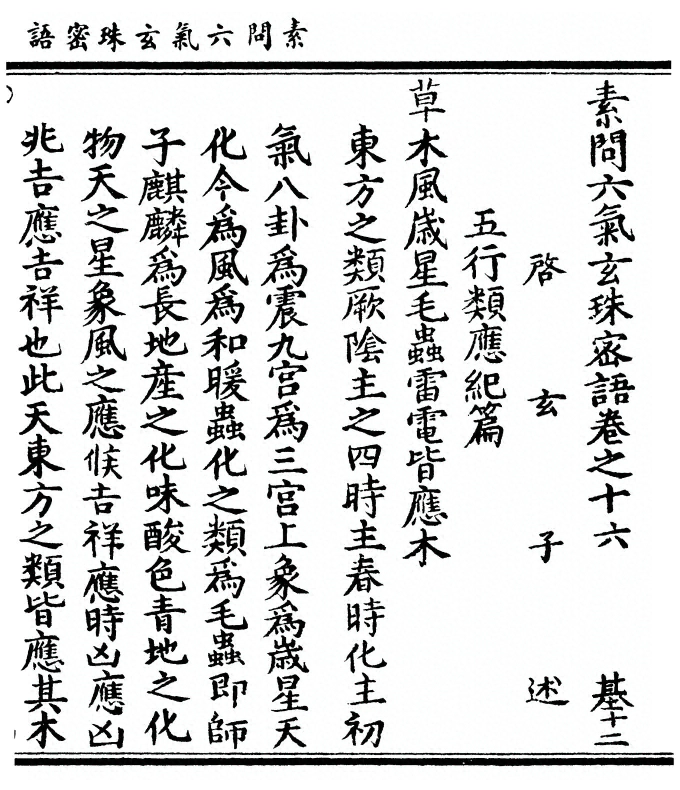 素問六氣玄珠密語
素問六氣玄珠密語卷之十六 基十二
啓玄子述
五行類應紀篇
草木風歲星毛蟲雷電皆應木
東方之類厥陰主之四時主春時化主初
氣八卦爲震九宮爲三宮上象爲歲星天
化今爲風爲和暖蟲化之類爲毛蟲即師
子麒麟爲長地産之化味酸色青地之化
物天之星象風之應候吉祥應時凶應凶
兆吉應吉祥也此天東方之類皆應其木